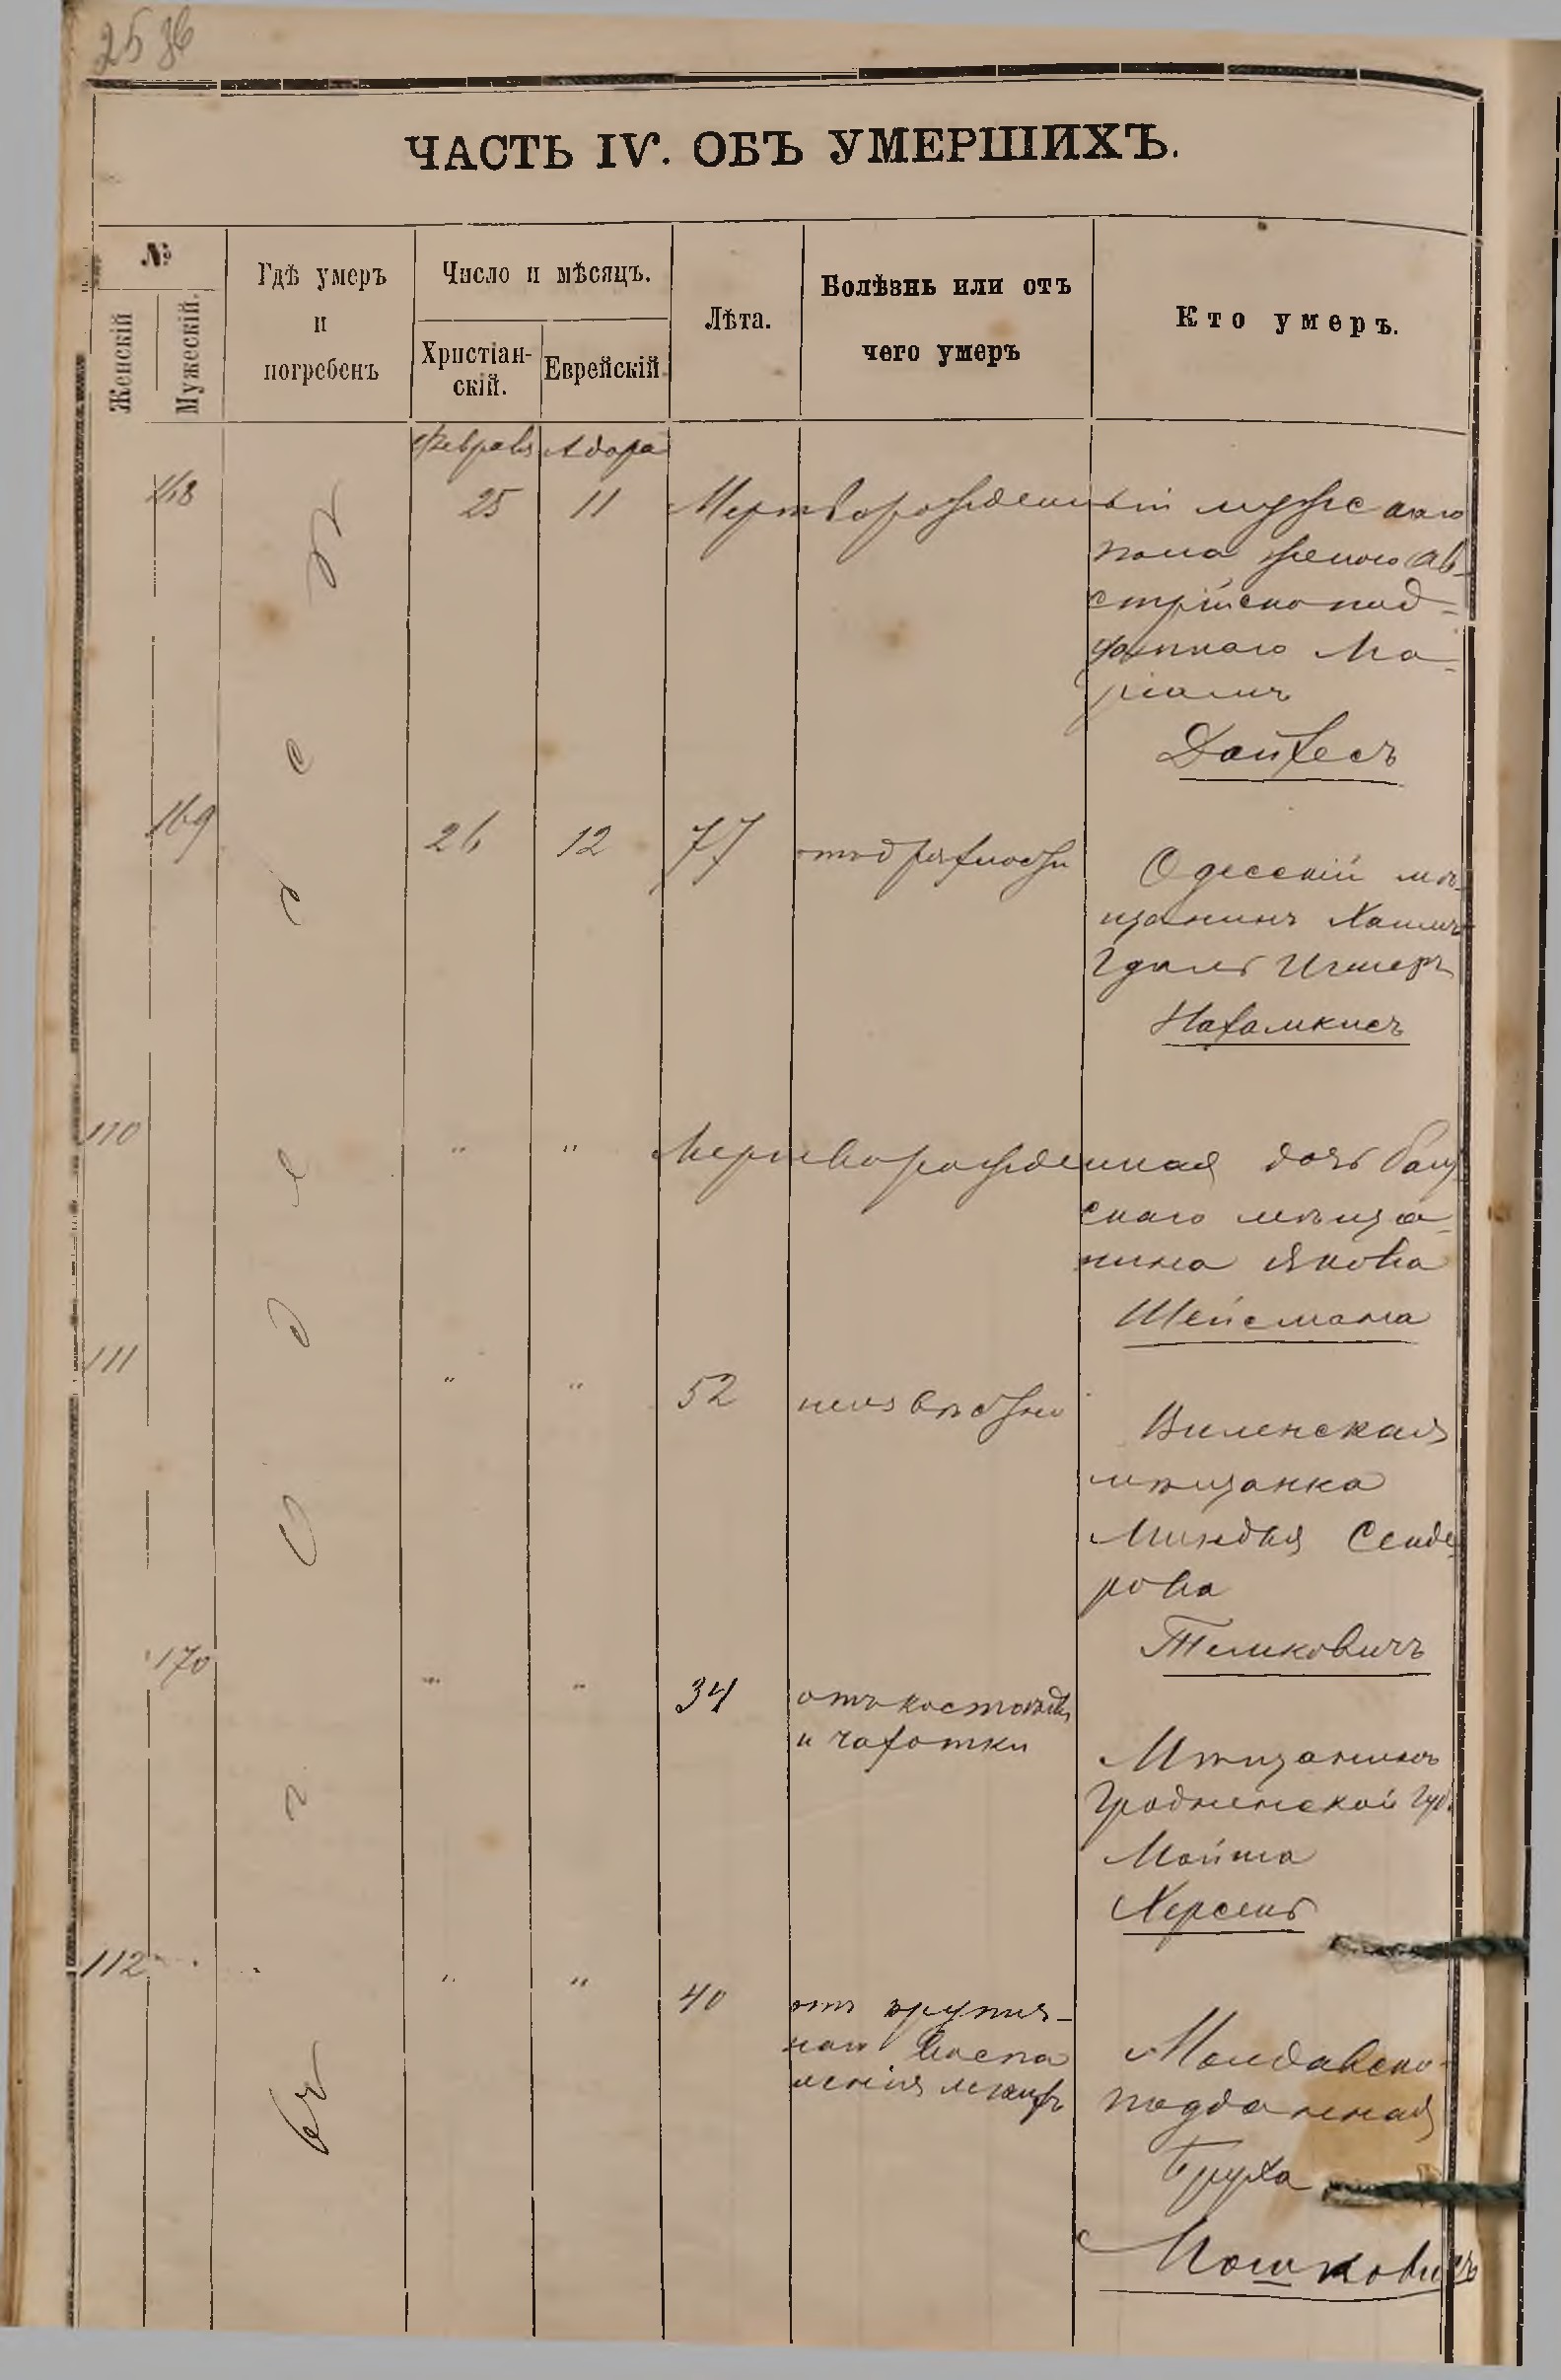 25 об
ЧАСТЬ IV. ОБЪ УМЕРШИХЪ.
№
Женскій
Мужескій.
Гдѣ умеръ
и
погребенъ
Число и мѣсяцъ.
Христіан-
скій.
Еврейскій
Лѣта.
Болѣзнь или отъ
чего умеръ
Кто умеръ.
Февраля Адора
въ г Одессѣ
168 25 11 Мертворожденный мужскаго
пола
Ав-
стрійскопод-
даннаго Ма-
ріамъ
Дайхесъ
169 26 12 77 отъ дряхлости
Одесскій мѣ-
щанинъ Хаимъ
Гдаль
Нахамкисъ
110 " " Мертворожденная дочь
скаго мѣща-
нина Якова
Шейсмана
111 " " 52 неизвѣстно
Виленская
мѣщанка
Миндля Сенде-
рова
Темковичъ
170 " " 34 отъ костоѣды
и чахотки
Мѣщанинъ
Гродненской губ.
Мойша
Херсень
112 " " 40 отъ крупоз-
наго воспа
ленія легкихъ
Молдавско-
подданная
Бруха
Мошковичъ